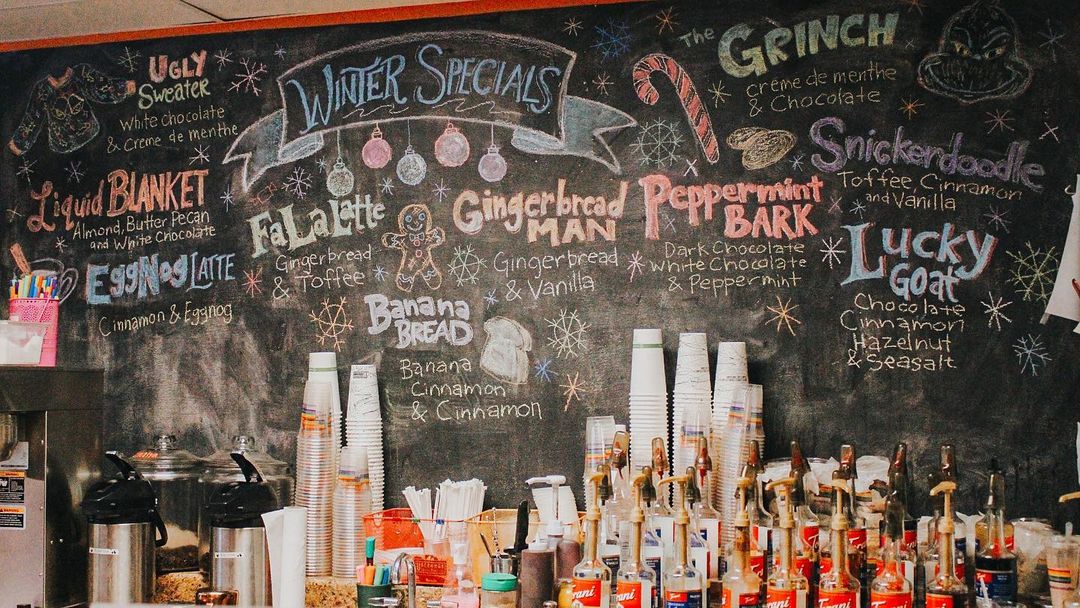 Winter Specials
Ugly
Sweater
White chocolate
& Creme de menthe
Liquid Blanket
Almond, Butter Pecan
and White Chocolate
EggNog Latte
Cinnamon & Eggnog
FaLaLatte
Gingerbread
& Toffee
Gingerbread
Man
Gingerbread
& Vanilla
Banana
Bread
Banana
Cinnamon
& Cinnamon
Peppermint
Bark
Dark Chocolate
White Chocolate
& Peppermint
The Grinch
creme de menthe
& Chocolate
Snickerdoodle
Toffee, Cinnamon
and Vanilla
Lucky
Goat
Chocolate
Cinnamon
Hazelnut
& Seasalt
Torani